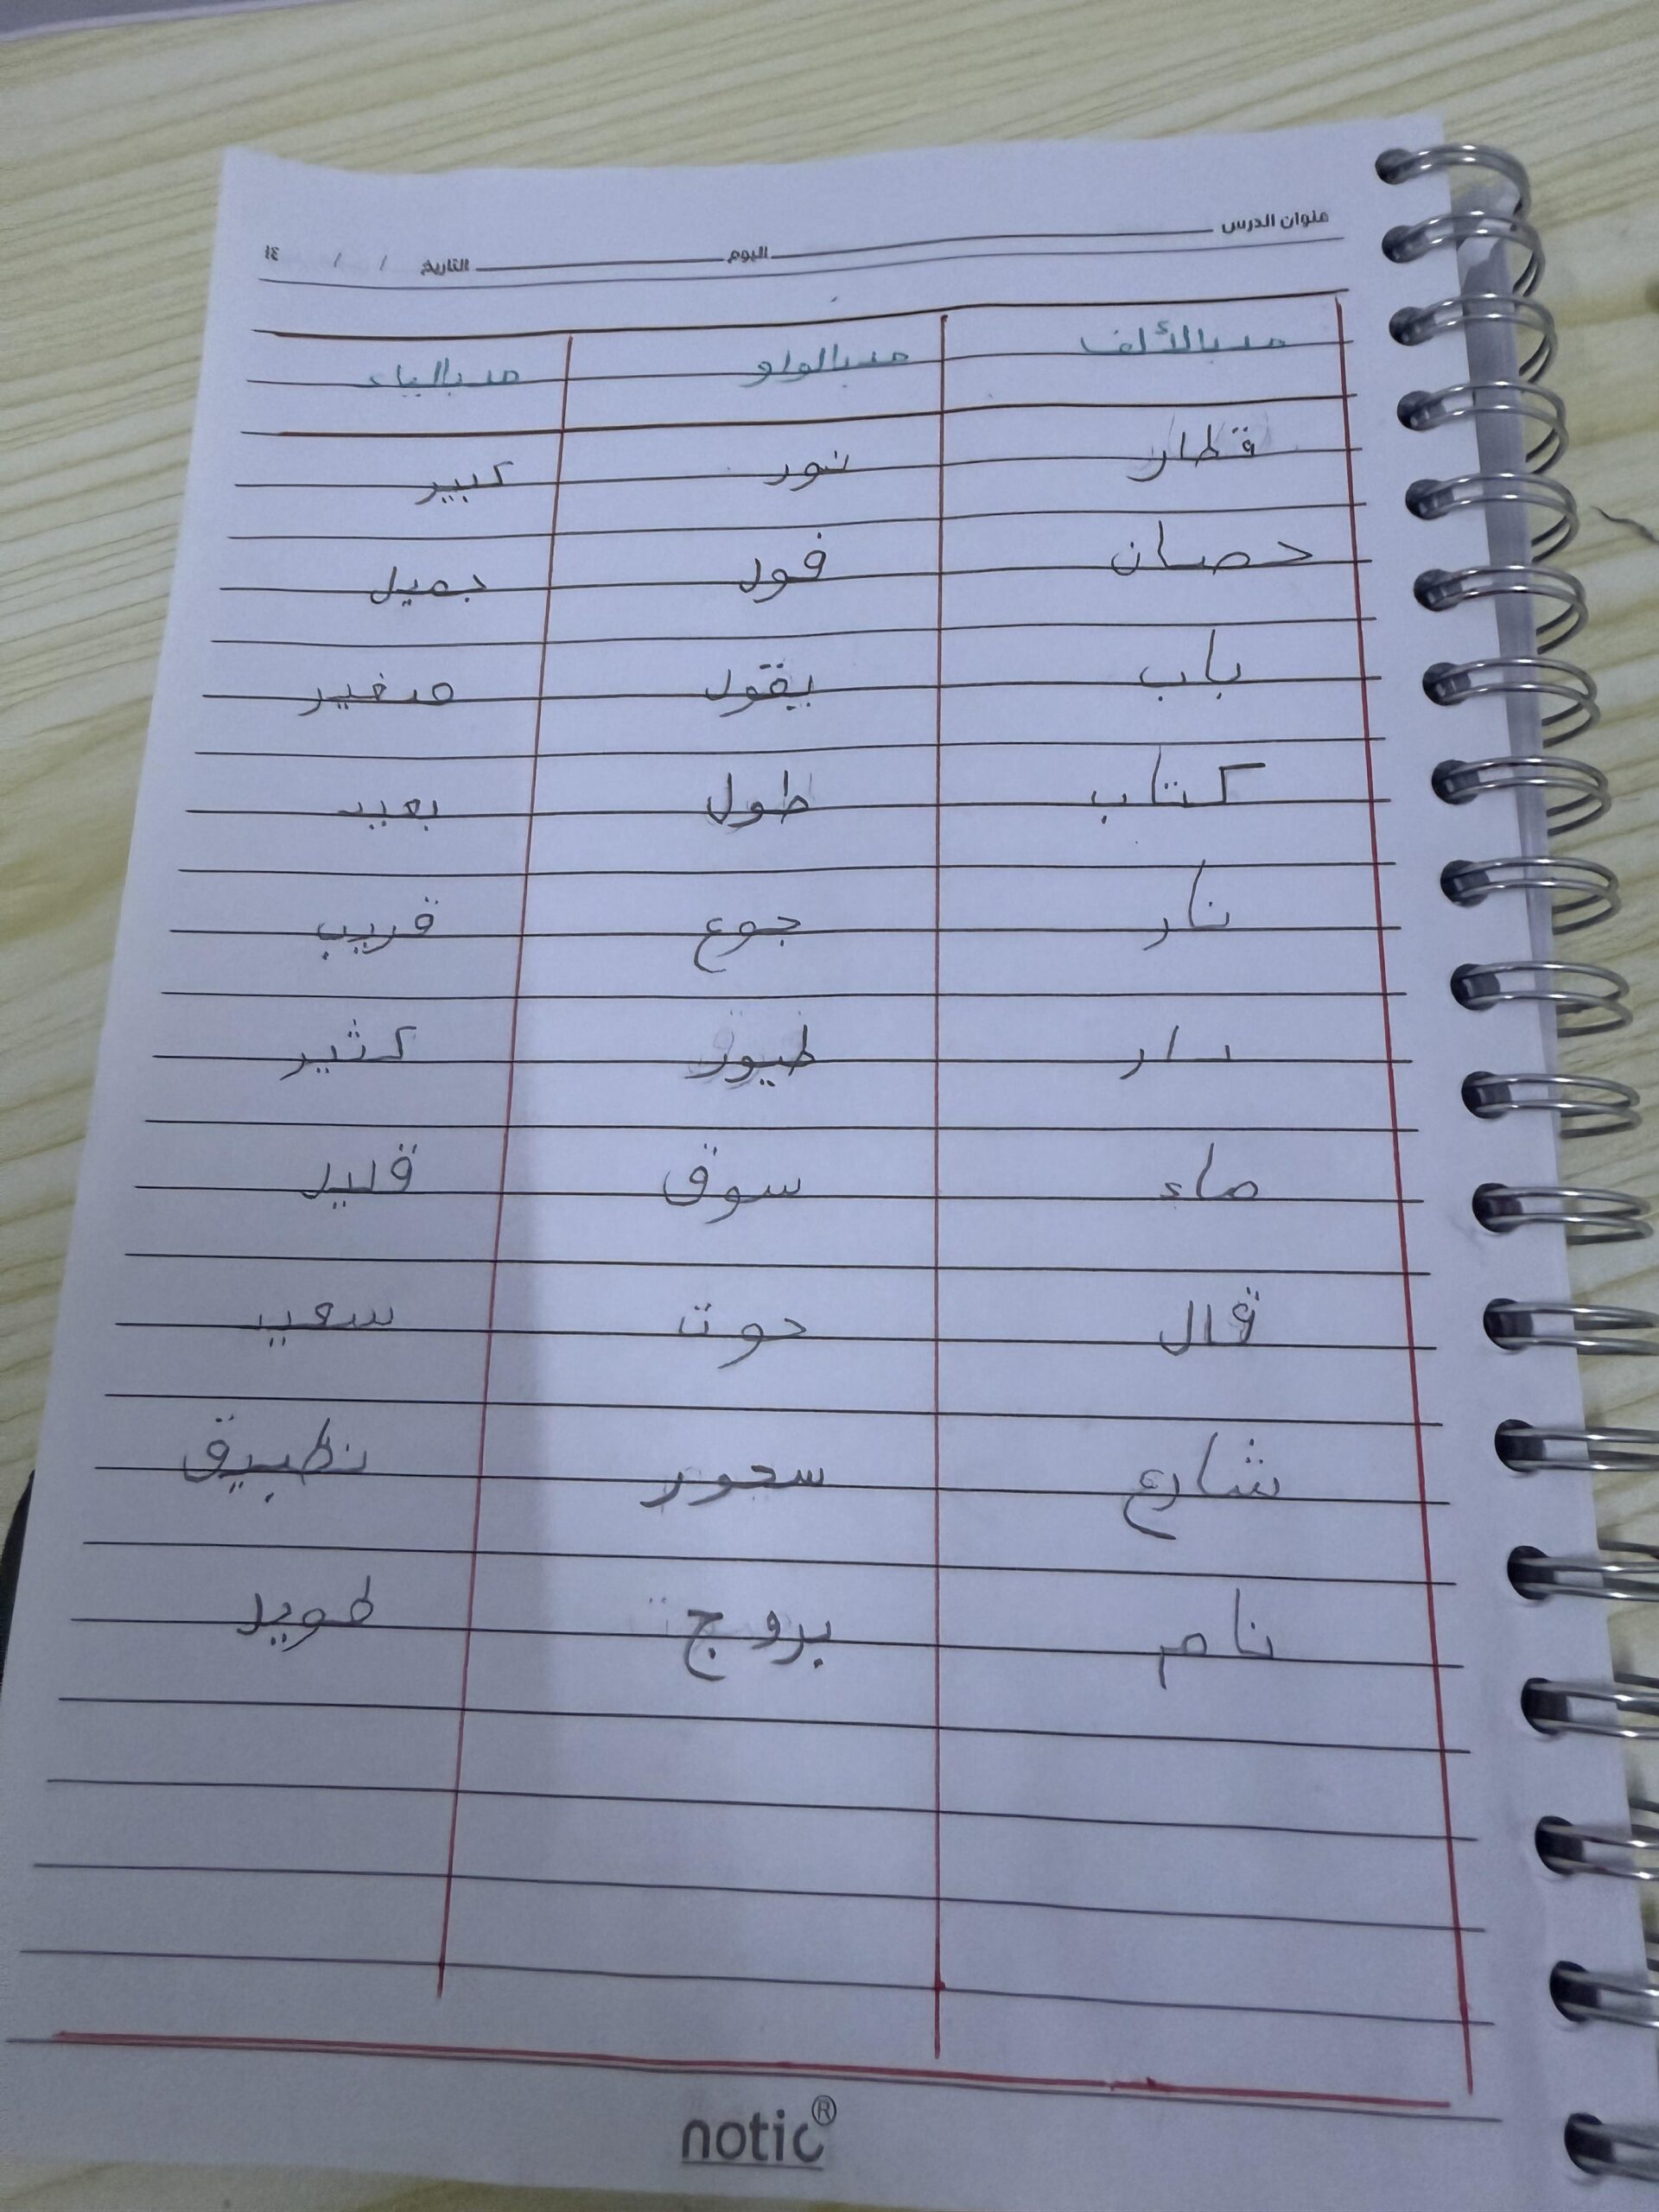 عنوان الدرس اليوم التاريخ / / ١٤
مد بالألف مد بالواو مد بالياء
قطار نور كبير
حصان فول جميل
باب يقول صغير
كتاب طول بعيد
نار جوع قريب
دار طيور كثير
ماء سوق قليل
قال حوت سعيد
شارع سحور تطبيق
نام بروج طويل
notic®